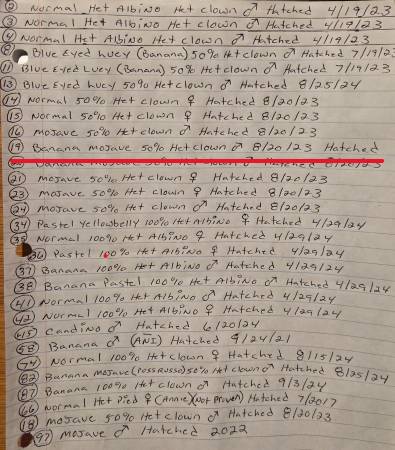 ② Normal Het Albino Het clown ♂ Hatched 4/19/23
③ Normal Het Albino Het clown ♂ Hatched 4/19/23
④ Normal Het Albino Het clown ♂ Hatched 4/19/23
⑧ Blue Eyed Lucy (Banana) 50% Het clown ♂ Hatched 7/19/23
⑪ Blue Eyed Lucy (Banana) 50% Het clown ♂ Hatched 7/19/23
⑬ Blue Eyed Lucy 50% Het clown ♂ Hatched 8/25/24
⑭ Normal 50% Het clown ♀ Hatched 8/20/23
⑮ Normal 50% Het clown ♀ Hatched 8/20/23
⑯ Mojave 50% Het clown ♂ Hatched 8/20/23
⑲ Banana Mojave 50% Het clown ♂ 8/20/23 Hatched
⑳ Banana Mojave 50% Het clown ♂ 8/20/23
㉑ Mojave 50% Het clown ♀ Hatched 8/20/23
㉓ Mojave 50% Het clown ♀ Hatched 8/20/23
㉔ Mojave 50% Het clown ♂ Hatched 8/20/23
㉞ Pastel Yellowbelly 100% Het Albino ♀ Hatched 4/29/24
㉟ Normal 100% Het Albino ♀ Hatched 4/29/24
㊱ Pastel 100% Het Albino ♀ Hatched 4/29/24
㊲ Banana 100% Het Albino ♂ Hatched 4/29/24
㊳ Banana Pastel 100% Het Albino ♂ Hatched 4/29/24
㊶ Normal 100% Het Albino ♂ Hatched 4/29/24
㊷ Normal 100% Het Albino ♂ Hatched 4/29/24
㊺ Candino ♂ Hatched 6/20/24
58 Banana ♂ (ANI) Hatched 9/24/21
74 Normal 100% Het clown ♀ Hatched 8/15/24
82 Banana Mojave (Poss Russo) 50% Het clown ♂ Hatched 8/25/24
87 Banana 100% Het clown ♂ Hatched 9/3/24
66 Normal Het Pied ♀ (Annie) (Not Proven) Hatched 7/2017
⑱ Mojave 50% Het clown ♂ Hatched 8/20/23
97 Mojave ♂ Hatched 2022